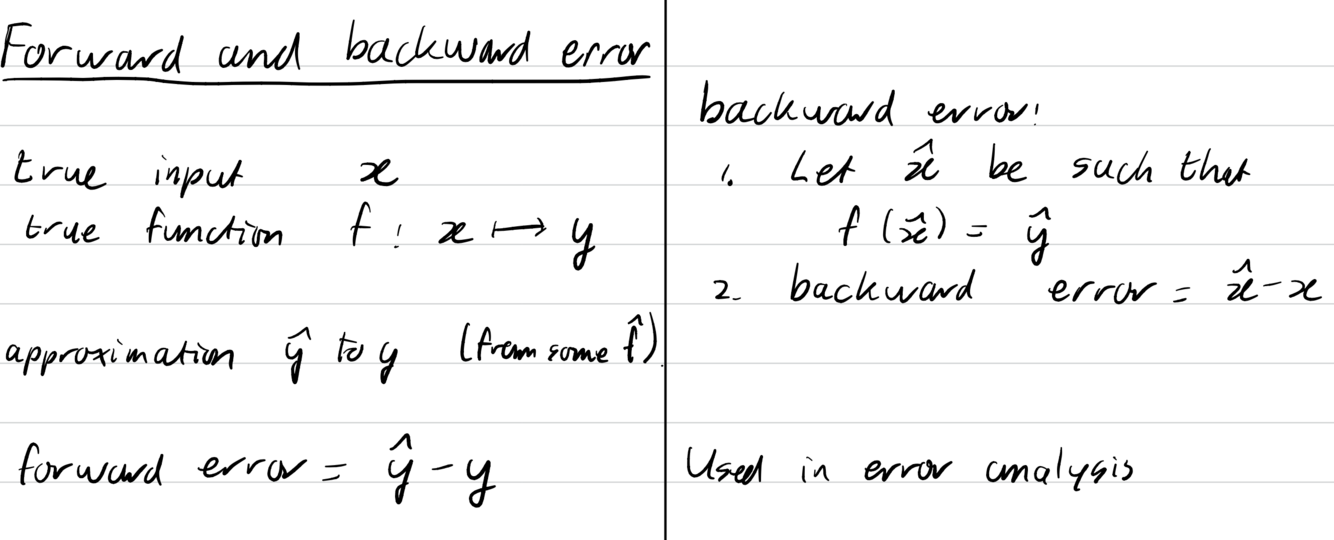 Forward and backward error
true input x
true function f : x ↦ y
approximation ŷ to y (from some f̂).
forward error = ŷ - y
backward error:
1. Let x̂ be such that
f(x̂) = ŷ
2. backward error = x̂ - x
Used in error analysis